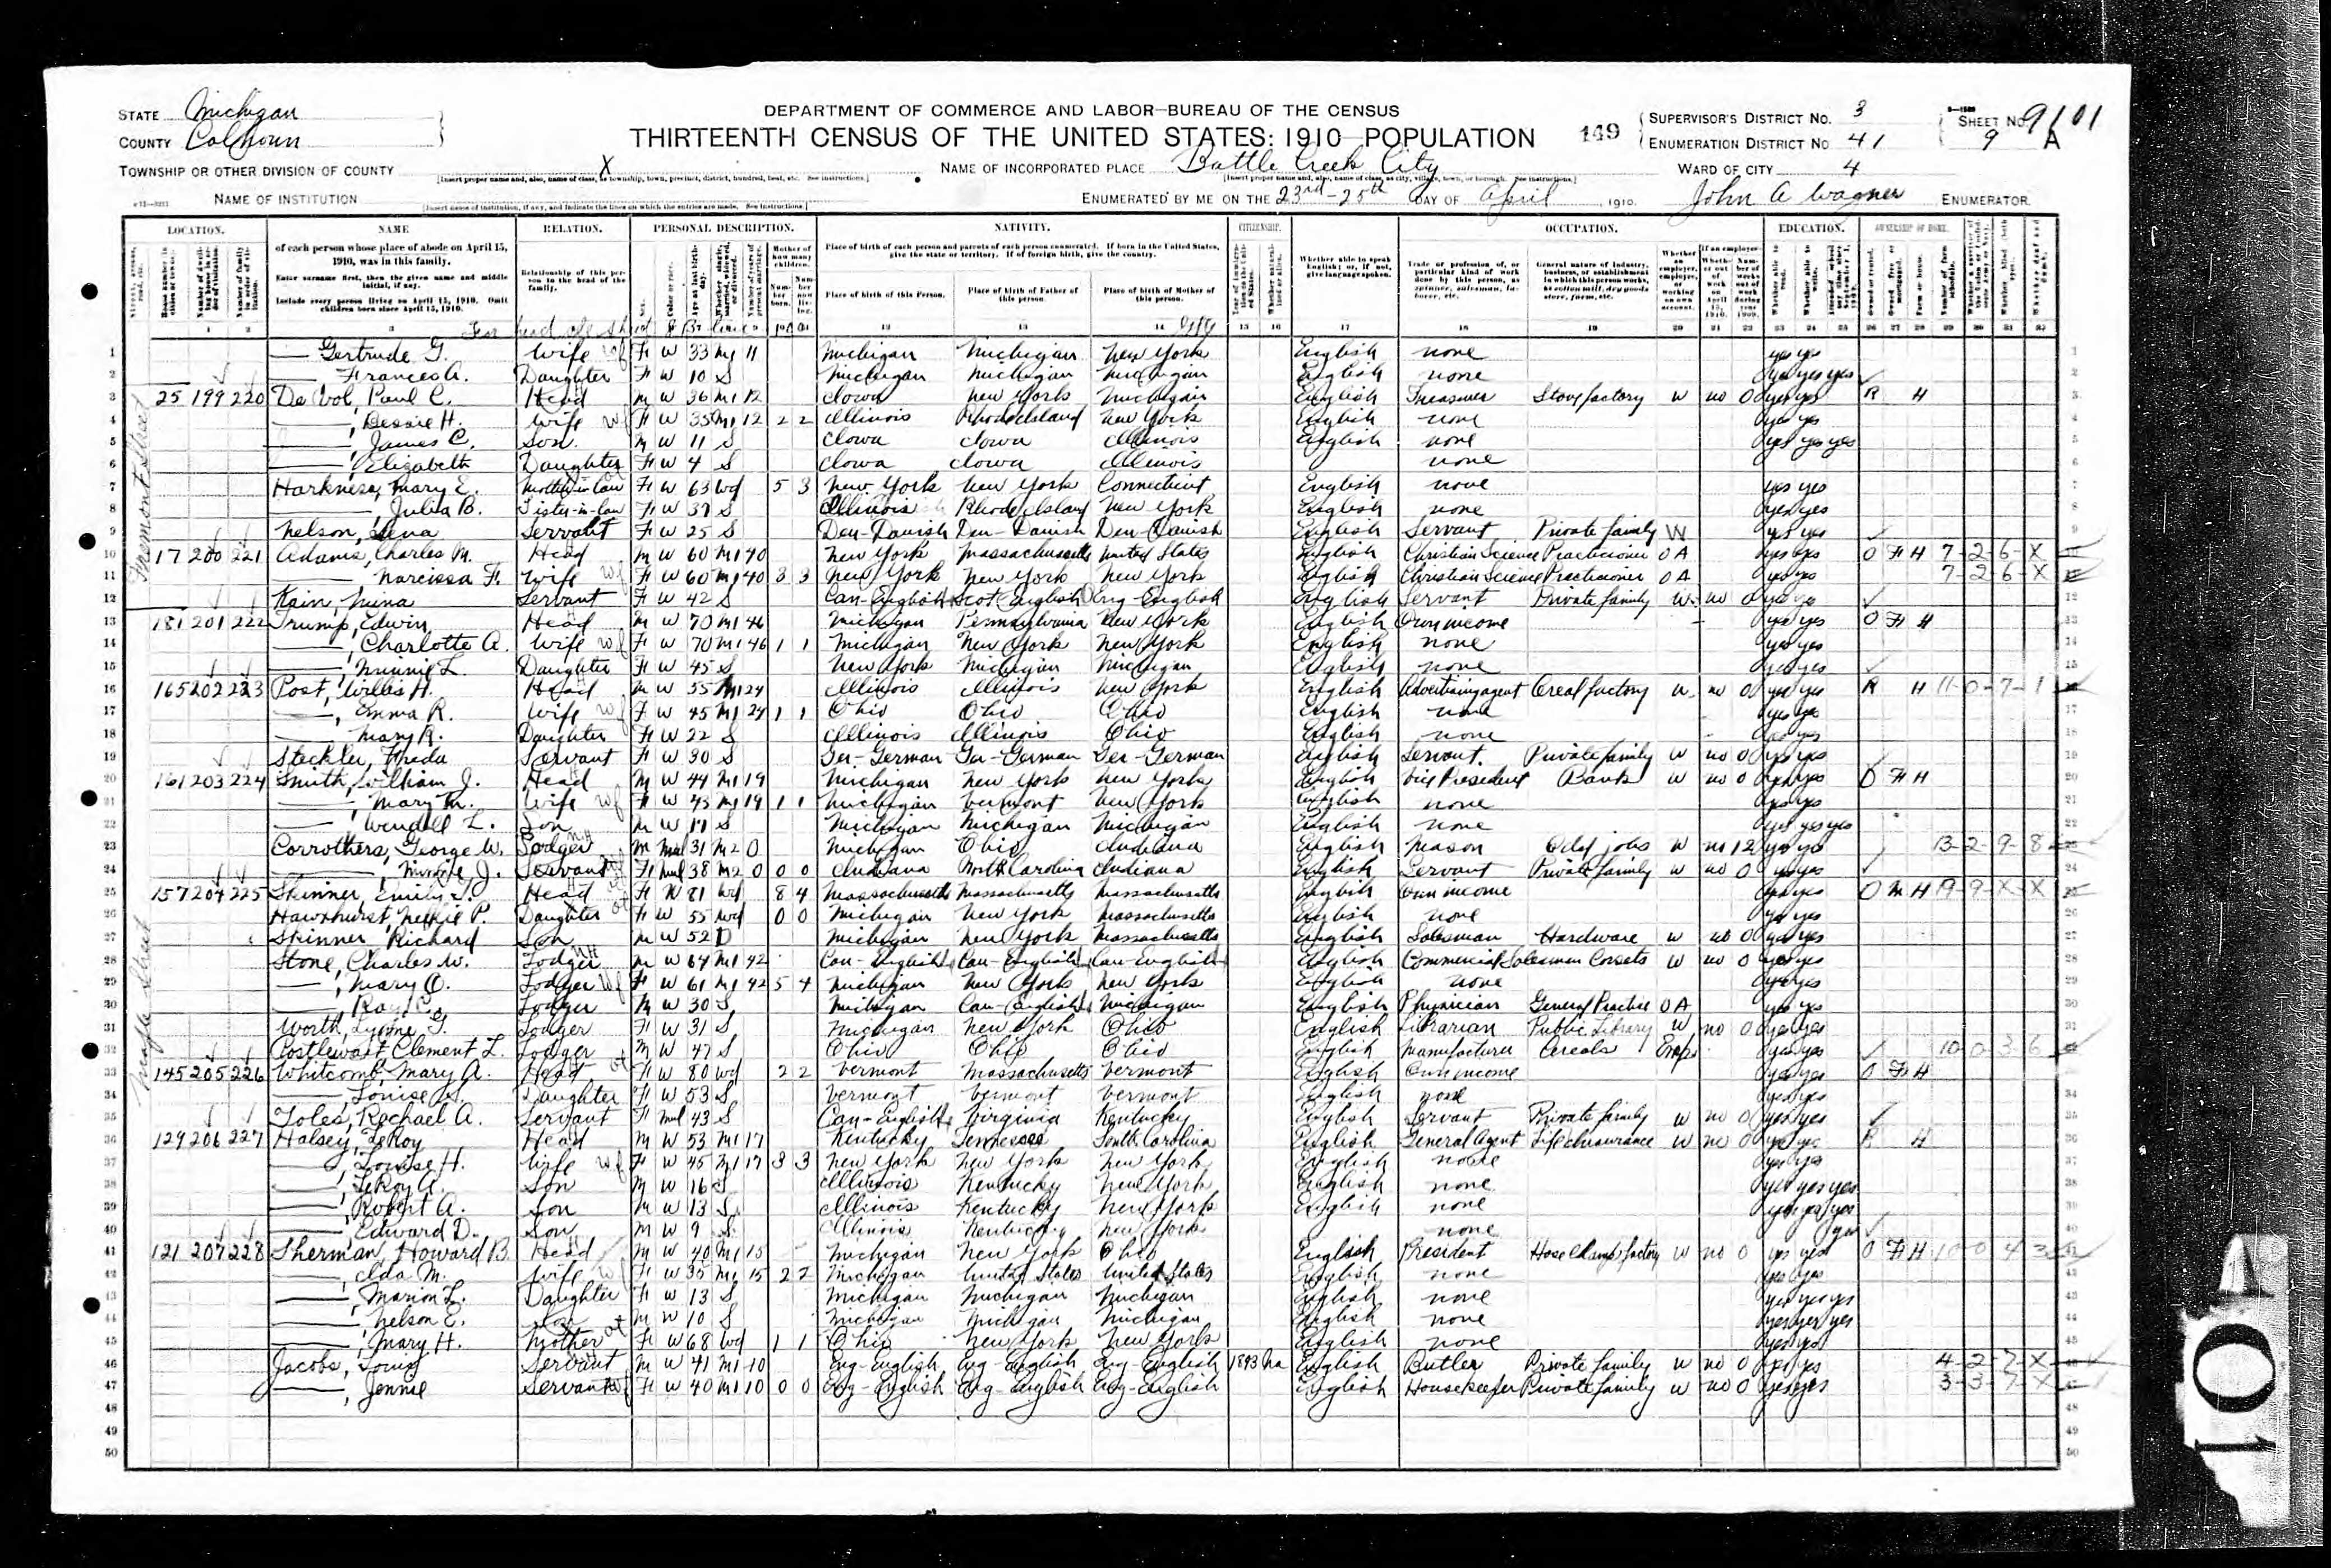 STATE Michigan
COUNTY Calhoun
TOWNSHIP OR OTHER DIVISION OF COUNTY X
[Insert proper name and, also, name of class, as township, town, precinct, district, hundred, beat, etc. See instructions.]
NAME OF INSTITUTION
[Insert name of institution, if any, and indicate the lines on which the entries are made. See instructions.]
DEPARTMENT OF COMMERCE AND LABOR—BUREAU OF THE CENSUS
THIRTEENTH CENSUS OF THE UNITED STATES: 1910—POPULATION
149
NAME OF INCORPORATED PLACE Battle Creek City
[Insert proper name and, also, name of class, as city, village, town, or borough. See instructions.]
ENUMERATED BY ME ON THE 23rd-25th DAY OF April, 1910.
SUPERVISOR'S DISTRICT No. 3
ENUMERATION DISTRICT No 41
SHEET No. 9 A
9101
WARD OF CITY 4
John A Wagner ENUMERATOR
LOCATION. NAME RELATION. PERSONAL DESCRIPTION. NATIVITY. CITIZENSHIP. OCCUPATION. EDUCATION. OWNERSHIP OF HOME.
of each person whose place of abode on April 15, 1910, was in this family.
Enter surname first, then the given name and middle initial, if any.
Include every person living on April 15, 1910. Omit children born since April 15, 1910.
Relationship of this person to the head of the family.
Place of birth of each person and parents of each person enumerated. If born in the United States, give the state or territory. If of foreign birth, give the country.
Place of birth of this Person. Place of birth of Father of this person. Place of birth of Mother of this person.
Whether able to speak English; or, if not, give language spoken.
1 Gertrude G. Wife F W 33 M1 11 Michigan Michigan New York English none yes yes
2 Frances A. Daughter F W 10 S Michigan Michigan Michigan English none yes yes yes
3 25 199 220 De Vol, Paul C. Head M W 36 M1 12 Iowa New York Michigan English Treasurer Stove factory W no 0 yes yes R H
4 Bessie H. Wife F W 35 M1 12 2 2 Illinois Rhode Island New York English none yes yes
5 James C. Son M W 11 S Iowa Iowa Illinois English none yes yes yes
6 Elizabeth Daughter F W 4 S Iowa Iowa Illinois none
7 Harkness, Mary E. Mother-in-law F W 63 Wd 5 3 New York New York Connecticut English none yes yes
8 Julia B. Sister-in-law F W 37 S Illinois Rhode Island New York English none yes yes
9 Nelson, Lena Servant F W 25 S Den-Danish Den-Danish Den-Danish English Servant Private family W yes yes
10 17 200 221 Adams, Charles M. Head M W 60 M1 40 New York Massachusetts United States English Christian Science Practicioner OA yes yes O F H 7-2-6-X
11 Narcissa F. Wife F W 60 M1 40 3 3 New York New York New York English Christian Science Practicioner OA yes yes 7-2-6-X
12 Kain, Mina Servant F W 42 S Can-English Scot (English) Eng-English English Servant Private family W no 0 yes yes
13 181 201 222 Trump, Edwin Head M W 70 M1 46 Michigan Pennsylvania New York English Own income yes yes O F H
14 Charlotte A. Wife F W 70 M1 46 1 1 Michigan New York New York English none yes yes
15 Minnie L. Daughter F W 45 S New York Michigan Michigan English none yes yes
16 165 202 223 Post, Willis H. Head M W 55 M1 24 Illinois Illinois New York English Advertising agent Cereal factory W no 0 yes yes R H 11-0-7-1
17 Emma R. Wife F W 45 M1 24 1 1 Ohio Ohio Ohio English none yes yes
18 Mary R. Daughter F W 22 S Illinois Illinois Ohio English none yes yes
19 Steckler, Freda Servant F W 30 S Ger-German Ger-German Ger-German English Servant Private family W no 0 yes yes
20 161 203 224 Smith, William J. Head M W 44 M1 19 Michigan New York New York English Vice President Bank W no 0 yes yes O F H
21 Mary M. Wife F W 45 M1 19 1 1 Michigan Vermont New York English none yes yes
22 Wendell L. Son M W 17 S Michigan Michigan Michigan English none yes yes yes
23 Corrothers, George W. Lodger M Mul 31 M2 0 Michigan Ohio Indiana English Mason Odd jobs W no 12 yes yes 13-2-9-8
24 Minnie J. Servant F Mul 38 M2 0 0 0 Indiana North Carolina Indiana English Servant Private family W no 0 yes yes
25 157 204 225 Skinner, Emily S. Head F W 81 Wd 8 4 Massachusetts Massachusetts Massachusetts English Own income yes yes O M H 9-9-X-X
26 Hawxhurst, Nellie P. Daughter F W 55 Wd 0 0 Michigan New York Massachusetts English none yes yes
27 Skinner, Richard Son M W 52 D Michigan New York Massachusetts English Salesman Hardware W no 0 yes yes
28 Stone, Charles W. Lodger M W 64 M1 42 Can-English Can-English Can-English English Commercial Salesman Corsets W no 0 yes yes
29 Mary O. Lodger F W 61 M1 42 5 4 Michigan New York New York English none yes yes
30 Ray C. Lodger M W 30 S Michigan Can-English Michigan English Physician General Practice OA yes yes
31 Worth, Lynne T. Lodger F W 31 S Michigan New York Ohio English Librarian Public Library W no 0 yes yes
32 Postlewait, Clement L. Lodger M W 47 S Ohio Ohio Ohio English Manufacturer Cereals Emp yes yes 10-0-3-6
33 145 205 226 Whitcomb, Mary A. Head F W 80 Wd 2 2 Vermont Massachusetts Vermont English Own income yes yes O F H
34 Louise Daughter F W 53 S Vermont Vermont Vermont English none yes yes
35 Toles, Rachael A. Servant F Mul 43 S Can-English Virginia Kentucky English Servant Private family W no 0 yes yes
36 129 206 227 Halsey, LeRoy Head M W 53 M1 17 Kentucky Tennessee South Carolina English General Agent Life Insurance W no 0 yes yes R H
37 Louise H. Wife F W 45 M1 17 3 3 New York New York New York English none yes yes
38 LeRoy A. Son M W 16 S Illinois Kentucky New York English none yes yes yes
39 Robert A. Son M W 13 S Illinois Kentucky New York English none yes yes yes
40 Edward D. Son M W 9 S Illinois Kentucky New York none yes
41 121 207 228 Sherman, Howard B. Head M W 40 M1 15 Michigan New York Ohio English President Hose Clamp factory W no 0 yes yes O F H 10 0 4 3
42 Ida M. Wife F W 35 M1 15 2 2 Michigan United States United States English none yes yes
43 Marion L. Daughter F W 13 S Michigan Michigan Michigan English none yes yes yes
44 Nelson E. Son M W 10 S Michigan Michigan Michigan English none yes yes yes
45 Mary H. Mother F W 68 Wd 1 1 Ohio New York New York English none yes yes
46 Jacobs, Louis Servant M W 41 M1 10 Eng-English Eng-English Eng-English 1893 Na English Butler Private family W no 0 yes yes 4-2-7-X
47 Jennie Servant F W 40 M1 10 0 0 Eng-English Eng-English Eng-English English Housekeeper Private family W no 0 yes yes 3-3-7-X
48
49
50
Fremont Street
Maple Street